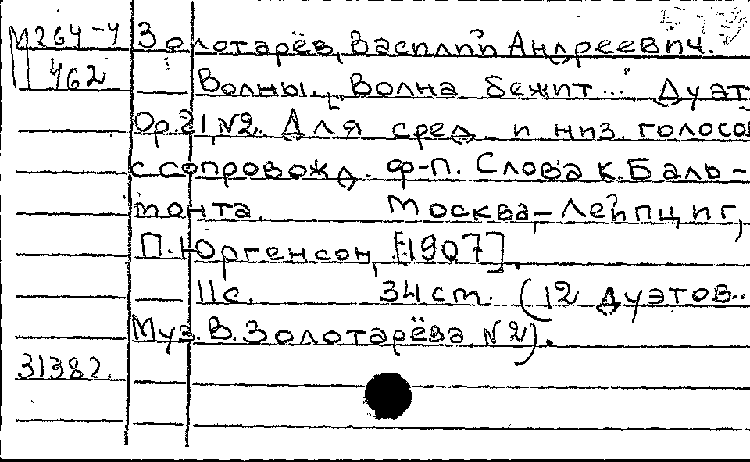 М264-4 Золотарёв, Василий Андреевич.
462 Волны. „Волна бежит..." Дуэт
Op.21, N2. Для сред. и низ. голосов
с сопровожд. ф-п. Слова К. Баль-
монта. Москва-Лейпциг,
П. Юргенсон, [1907].
11с. 34cm. (12 дуэтов..
Муз. В. Золотарёва N2).
31382.